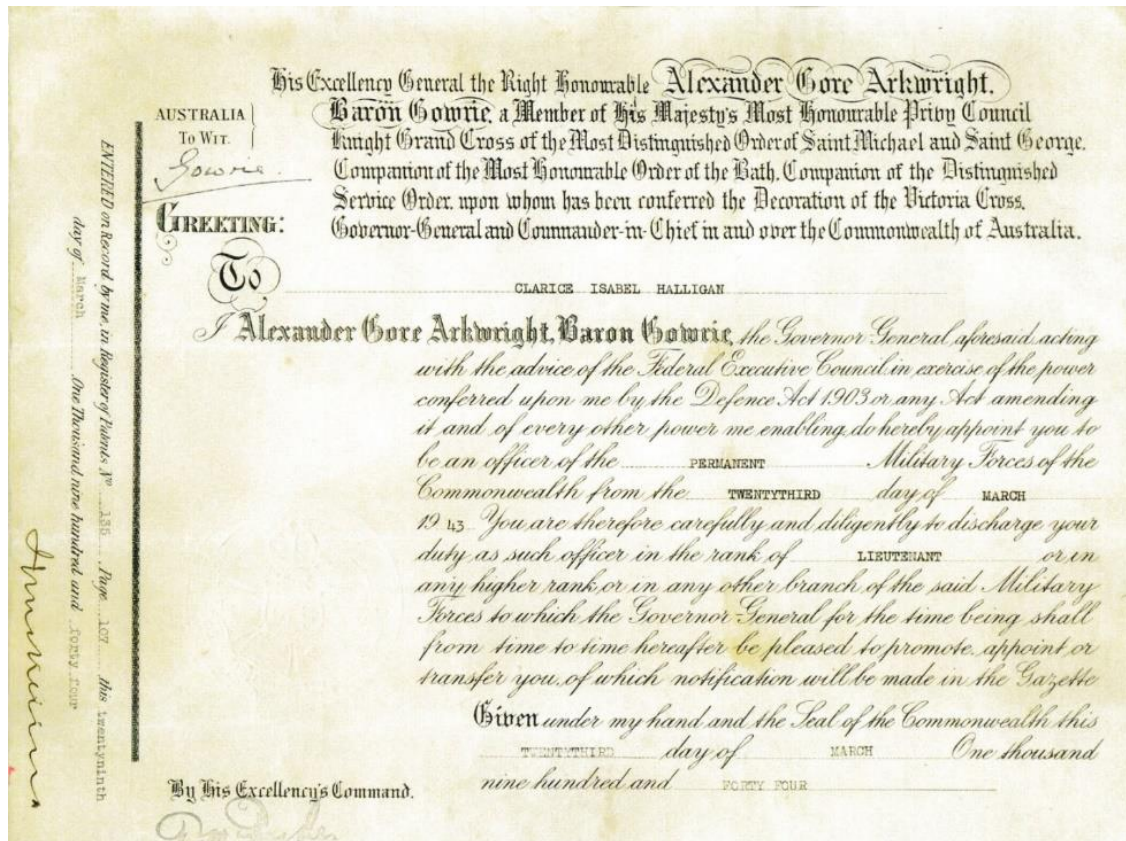 His Excellency General the Right Honourable Alexander Gore Arkwright,
Baron Gowrie, a Member of His Majesty's Most Honourable Privy Council
Knight Grand Cross of the Most Distinguished Order of Saint Michael and Saint George,
Companion of the Most Honourable Order of the Bath, Companion of the Distinguished
Service Order, upon whom has been conferred the Decoration of the Victoria Cross,
Governor-General and Commander-in-Chief in and over the Commonwealth of Australia.
AUSTRALIA
TO WIT.
Gowrie.
GREETING:
To CLARICE ISABEL HALLIGAN
I Alexander Gore Arkwright, Baron Gowrie, the Governor General, aforesaid, acting
with the advice of the Federal Executive Council in exercise of the power
conferred upon me by the Defence Act 1903 or any Act amending
it and of every other power me enabling, do hereby appoint you to
be an officer of the PERMANENT Military Forces of the
Commonwealth from the TWENTYTHIRD day of MARCH
1943 You are therefore carefully and diligently to discharge your
duty as such officer in the rank of LIEUTENANT or in
any higher rank, or in any other branch of the said Military
Forces to which the Governor General for the time being shall
from time to time hereafter be pleased to promote, appoint or
transfer you, of which notification will be made in the Gazette
Given under my hand and the Seal of the Commonwealth this
TWENTYTHIRD day of MARCH One thousand
nine hundred and FORTY FOUR
By His Excellency's Command.
ENTERED on Record by me, in Register of Patents No 135 Page 107 this twentyninth
day of March One Thousand nine hundred and forty four